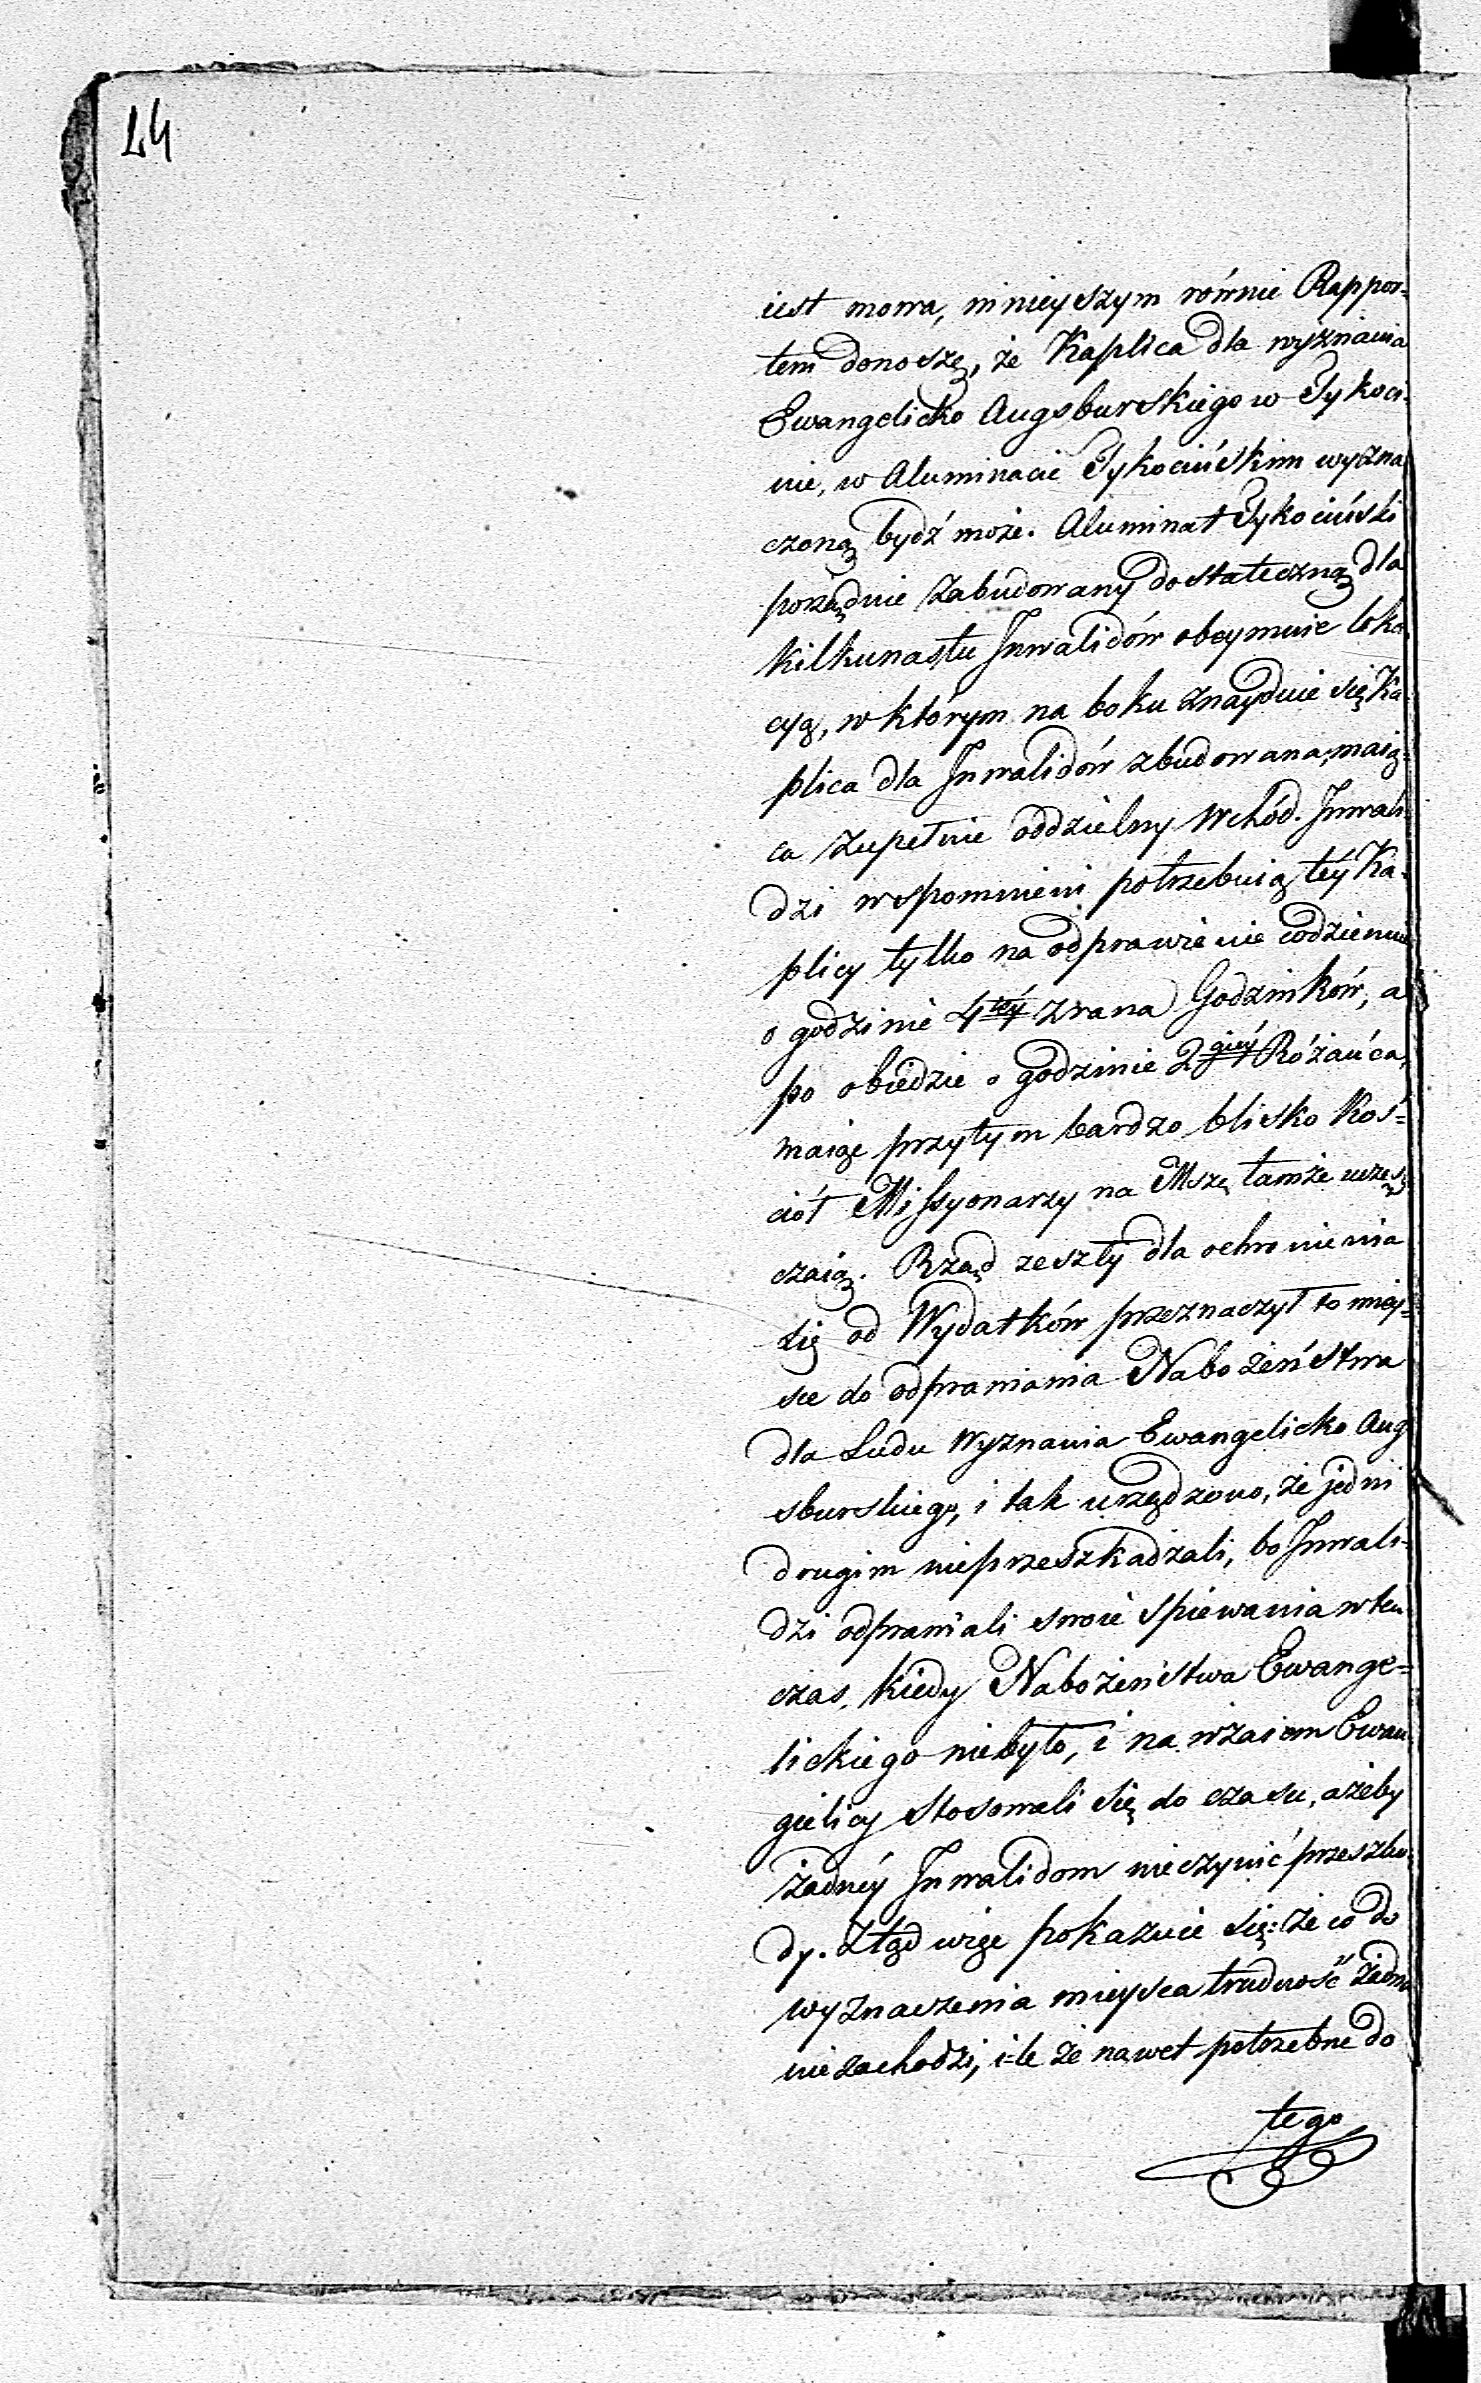 24
iest mowa, ninieyszym równie Rappor=
tem donoszę, że Kaplica dla wyznania
Ewangelicko Augsburskiego w Tykoci-
nie, w Aluminacie Tykocińskim wyzna
czoną bydź może. Aluminat Tykociński
porządnie zabudowany dostateczną dla
kilkunastu Inwalidów obeymuie loka
cyą, w którym na boku znayduie się Ka-
plica dla Inwalidów zbudowana, maią-
ca zupełnie oddzielny Wchód. Inwali
dzi wspomnieni potrzebuią téy Ka-
plicy tylko na odprawienie codziennie
o godzinie 4téy zrana Godzinków, a
po obiedzie o godzinie 2giéy Różańca,
maiąc przytym bardzo blisko Koś=
ciół Missyonarzy na Mszę tamże uczęsz
czaią. Rząd zeszły dla ochronienia
się od Wydatków przeznaczył to miey=
sce do odprawiania Nabożeństwa
dla Ludu Wyznania Ewangelicko Aug
sburskiego, i tak urządzono, że jedni
drugim nieprzeszkadzali, bo Inwali=
dzi odprawiali swoie spiewania wten
czas, kiedy Nabożeństwa Ewange=
lickiego niebyło, i na wzaiem Ewan
gielicy stosowali się do czasu, ażeby
żadnéy Inwalidom nieczynić przeszko
dy. Ztąd więc pokazuie się: że co do
wyznaczenia mieysca trudność żadna
niezachodzi, i-le że nawet potrzebne do
tego